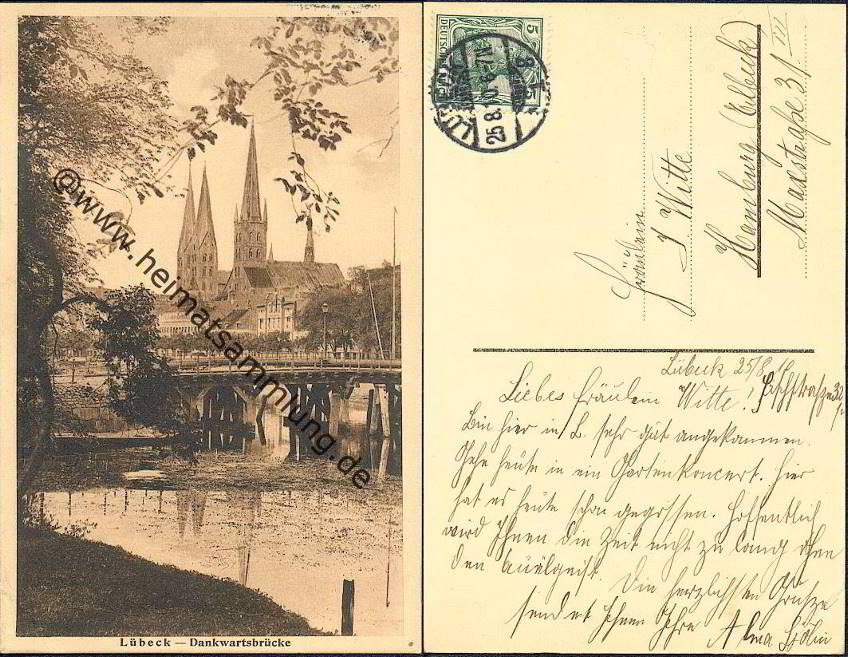 @www.heimatsammlung.de
Lübeck — Dankwartsbrücke
DEUTSCHES
5 5
25.8.10. 6-7N
Fräulein
J Witte
Hamburg (Eilbeck)
Maxstraße 31 III
Lübeck 25/8
Liebes Fräulein Witte!
Bin hier in L. sehr gut angekommen.
Gehe heute in ein Gartenkoncert. Hier
hat es heute schon gegossen. Hoffentlich
wird Ihnen die Zeit nicht zu lang ohne
den Quälgeist. Die herzlichsten Grüsze
sendet Ihnen Ihre Alma